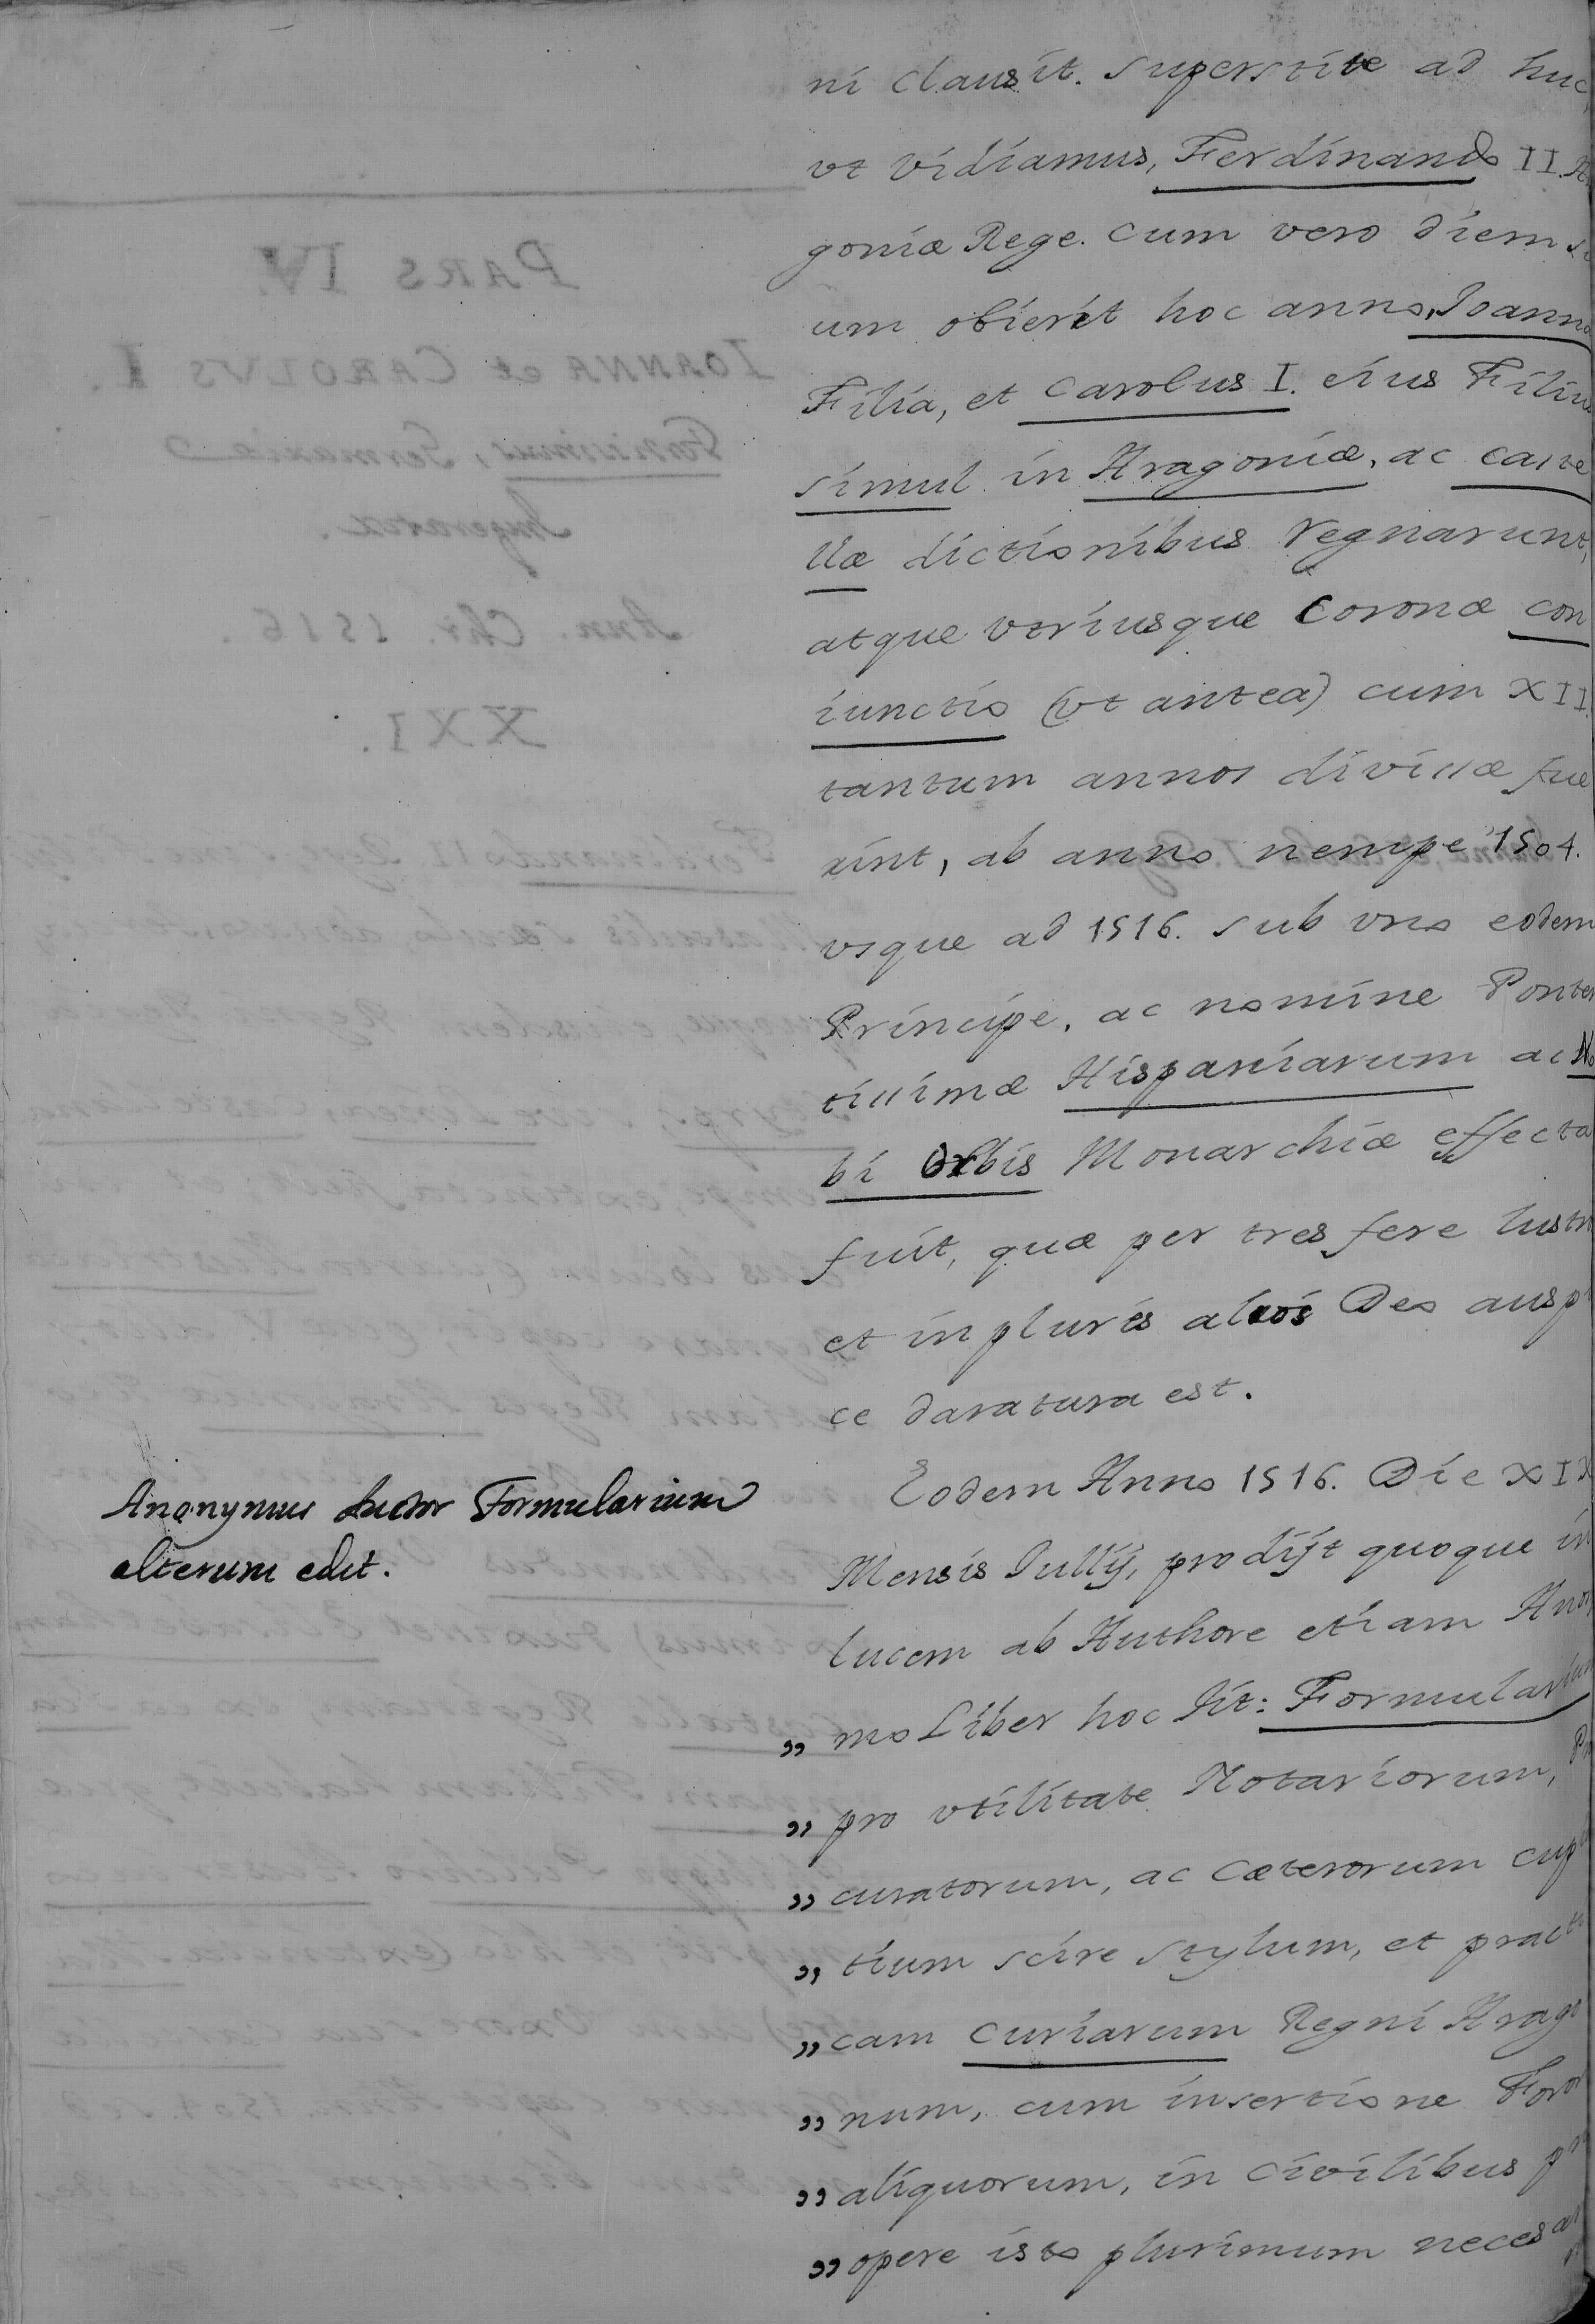 ni clausit. superstite ad huc,
vt vidiamus, Ferdinando II. A
goniæ Rege. cum vero diem su
um obierit hoc anno, Joanna
Filia, et Carolus I. eius Filius
simul in Aragoniæ, ac caste
llæ dictionibus regnarunt,
atque vtriusque Coronæ con
iunctio (vt antea) cum XII.
tantum annos divissæ fue
rint, ab anno nempe 1504.
vsque ad 1516. sub vno eodem
Principe, ac nomine Poten
tissimæ Hispaniarum ac No
bi Orbis Monarchiæ effecta
fuit, quæ per tres fere lustr
et in plures alios Deo auspi
ce daratura est.
Anonymus Auctor Formularium
alterum edit.
Eodem Anno 1516. Die XIX
Mensis Jullij, prodijt quoque in
lucem ab Authore etiam Anon
„ mo Liber hoc tit: Formularium
„ pro vtilitate Notariorum, Pro
„ curatorum, ac cæterorum cupi
„ tium scire stylum, et practi
„ cam curiarum Regni Arago
„ num, cum insertione Foror
„ aliquorum, in civilibus pr
„ opere isto plurimum necesar